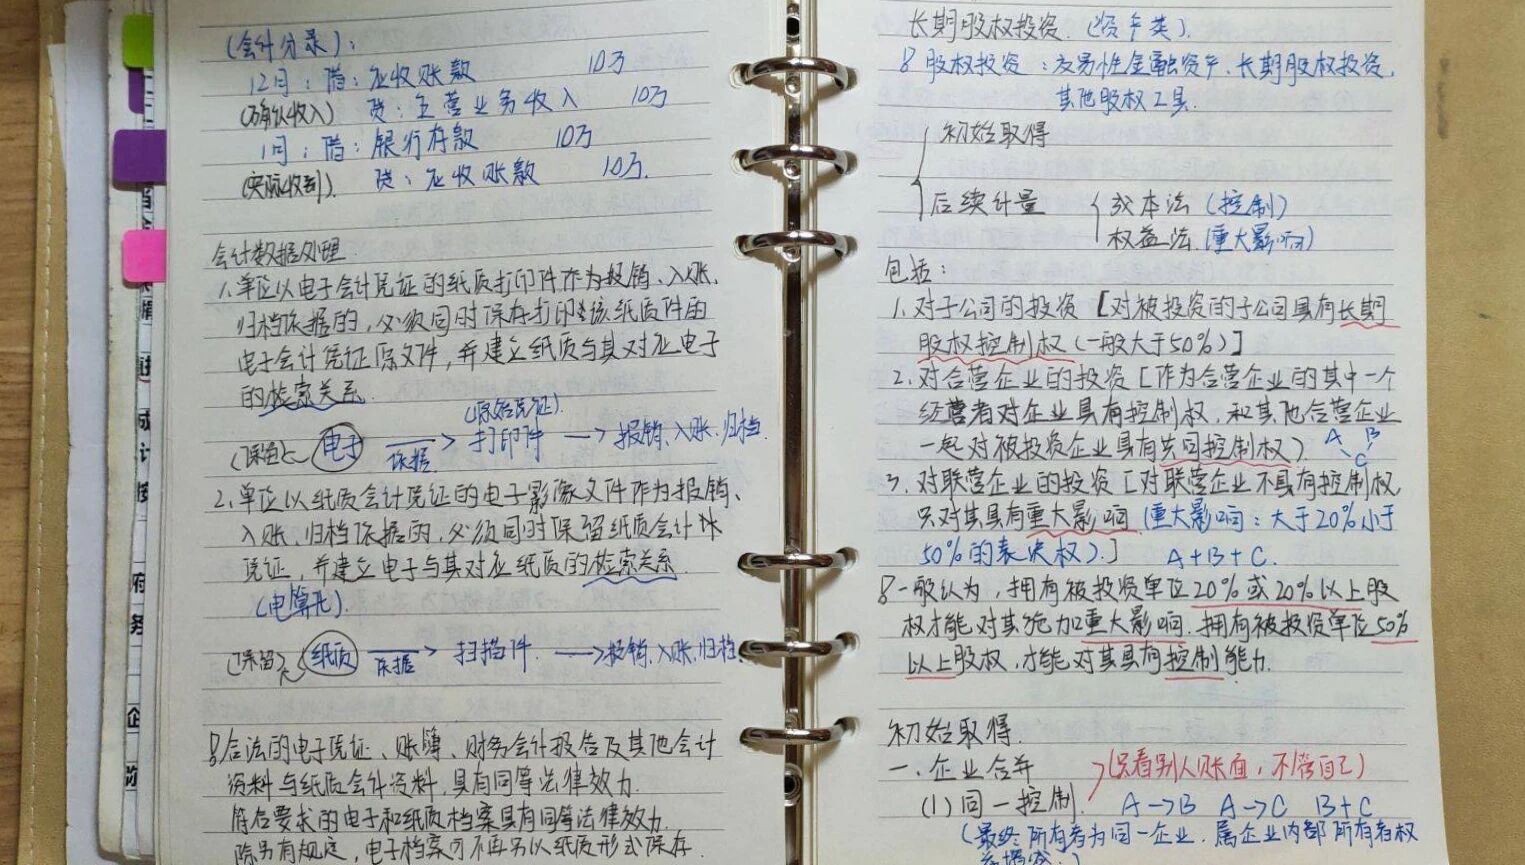 (会计分录):
12月:借:应收账款 10万
(确认收入) 贷:主营业务收入 10万
1月:借:银行存款 10万
(实际收到) 贷:应收账款 10万.
会计数据处理
1.单位以电子会计凭证的纸质打印件作为报销、入账、
归档依据的,必须同时保存打印该纸质件的
电子会计凭证原文件,并建立纸质与其对应电子
的检索关系.
(原始凭证).
(保留) 电子 依据 → 打印件 → 报销、入账、归档.
2.单位以纸质会计凭证的电子影像文件作为报销、
入账、归档依据的,必须同时保留纸质会计
凭证,并建立电子与其对应纸质的检索关系.
(电算化).
(保留) 纸质 依据 → 扫描件 → 报销、入账、归档.
合法的电子凭证、账簿、财务会计报告及其他会计
资料与纸质会计资料,具有同等法律效力.
符合要求的电子和纸质档案具有同等法律效力.
除另有规定,电子档案可不再另以纸质形式保存.
长期股权投资.(资产类).
股权投资:交易性金融资产、长期股权投资、
其他股权工具.
初始取得
后续计量 { 成本法(控制)
权益法(重大影响)
包括:
1.对子公司的投资[对被投资的子公司具有长期
股权控制权(一般大于50%)]
2.对合营企业的投资[作为合营企业的其中一个
经营者对企业具有控制权,和其他合营企业
一起对被投资企业具有共同控制权). A B
C
3.对联营企业的投资[对联营企业不具有控制权,
只对其具有重大影响(重大影响:大于20%小于
50%的表决权).] A+B+C.
一般认为,拥有被投资单位20%或20%以上股
权才能对其施加重大影响.拥有被投资单位50%
以上股权,才能对其具有控制能力.
初始取得.
一、企业合并 (只看别人账面,不管自己)
(1)同一控制 A→B A→C B+C
(最终所有者为同一企业.属企业内部所有者权